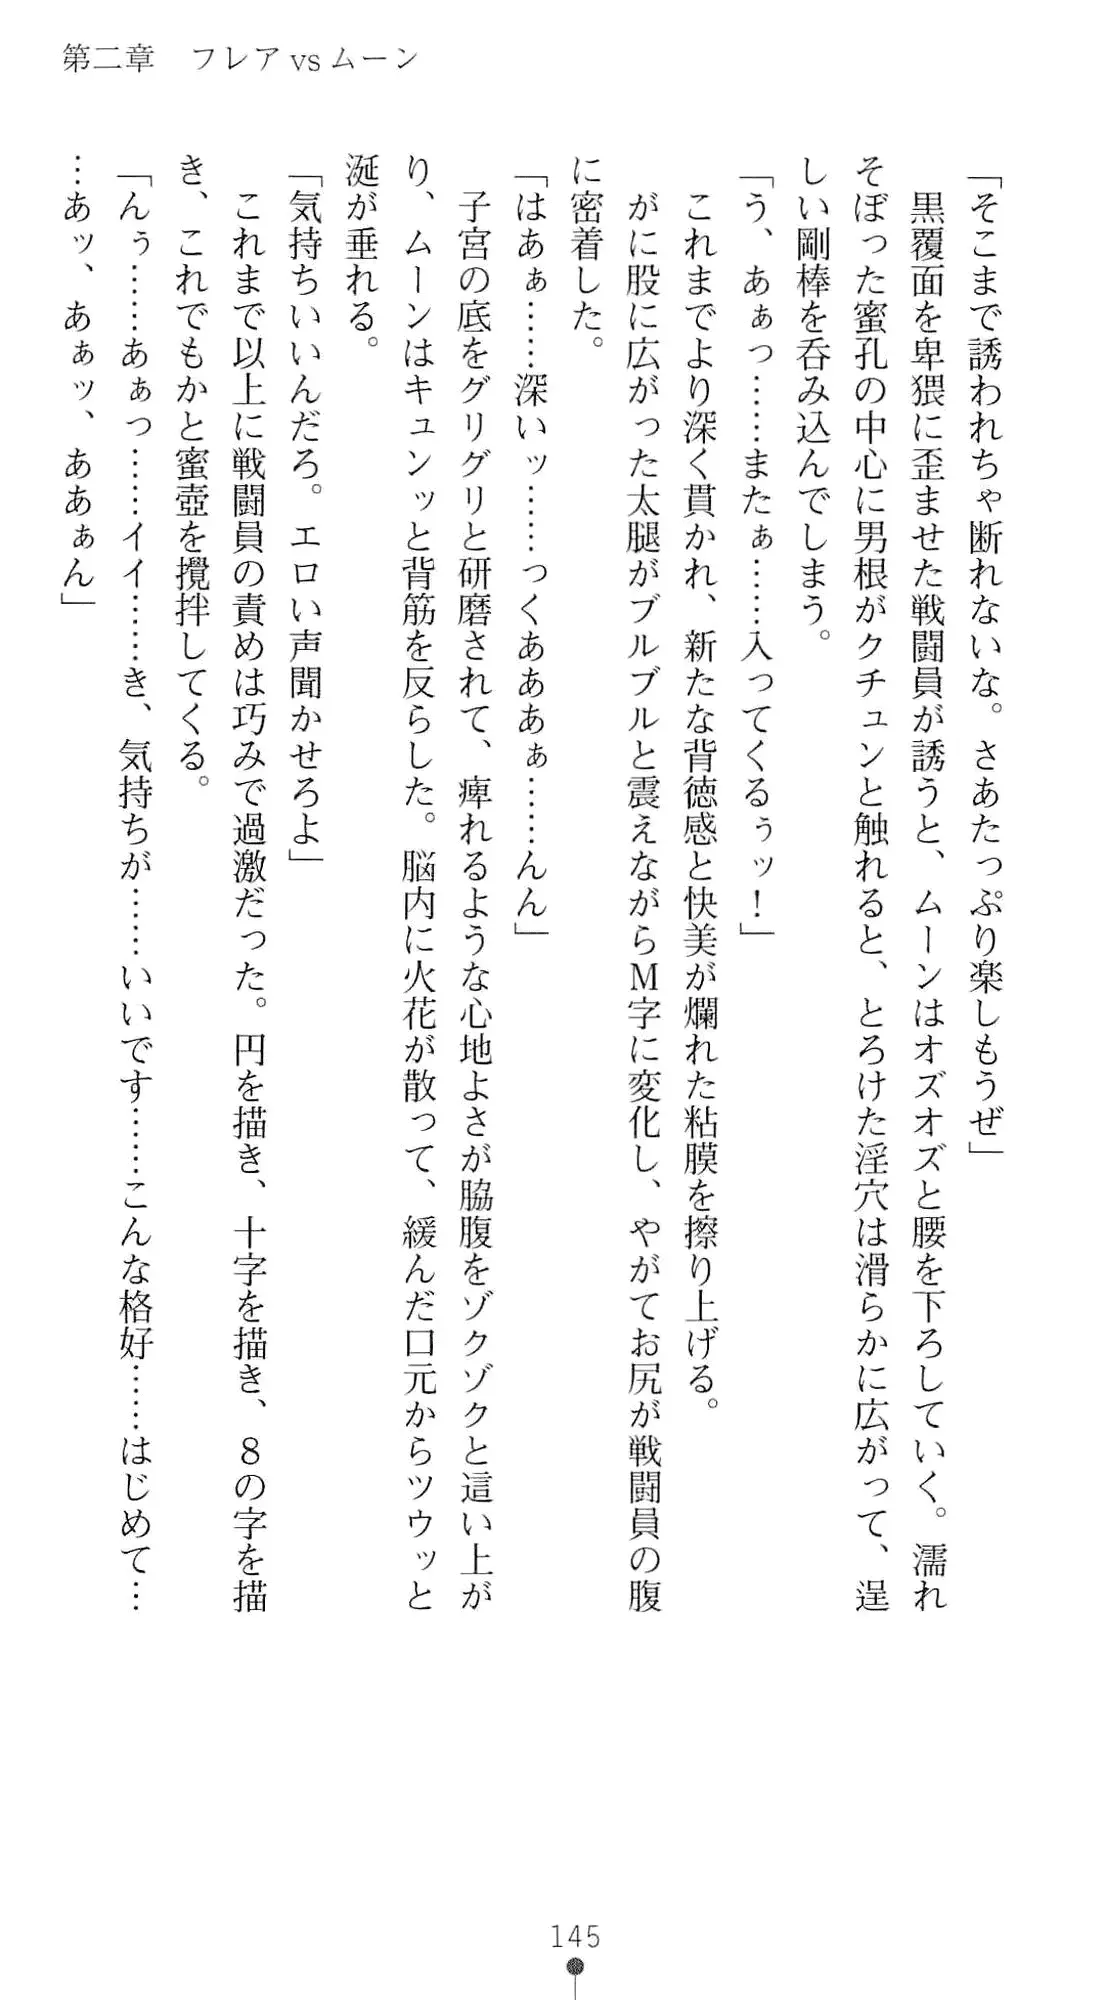 第二章　フレア vs ムーン
「そこまで誘われちゃ断れないな。さあたっぷり楽しもうぜ」
黒覆面を卑猥に歪ませた戦闘員が誘うと、ムーンはオズオズと腰を下ろしていく。濡れ
そぼった蜜孔の中心に男根がクチュンと触れると、とろけた淫穴は滑らかに広がって、逞
しい剛棒を呑み込んでしまう。
「う、あぁっ……またぁ……入ってくるぅッ！」
これまでより深く貫かれ、新たな背徳感と快美が爛れた粘膜を擦り上げる。
がに股に広がった太腿がブルブルと震えながらＭ字に変化し、やがてお尻が戦闘員の腹
に密着した。
「はあぁ……深いッ……っくあああぁ……んん」
子宮の底をグリグリと研磨されて、痺れるような心地よさが脇腹をゾクゾクと這い上が
り、ムーンはキュンッと背筋を反らした。脳内に火花が散って、緩んだ口元からツウッと
涎が垂れる。
「気持ちいいんだろ。エロい声聞かせろよ」
これまで以上に戦闘員の責めは巧みで過激だった。円を描き、十字を描き、８の字を描
き、これでもかと蜜壺を攪拌してくる。
「んぅ……あぁっ……イイ……き、気持ちが……いいです……こんな格好……はじめて…
…あッ、あぁッ、ああぁん」
145